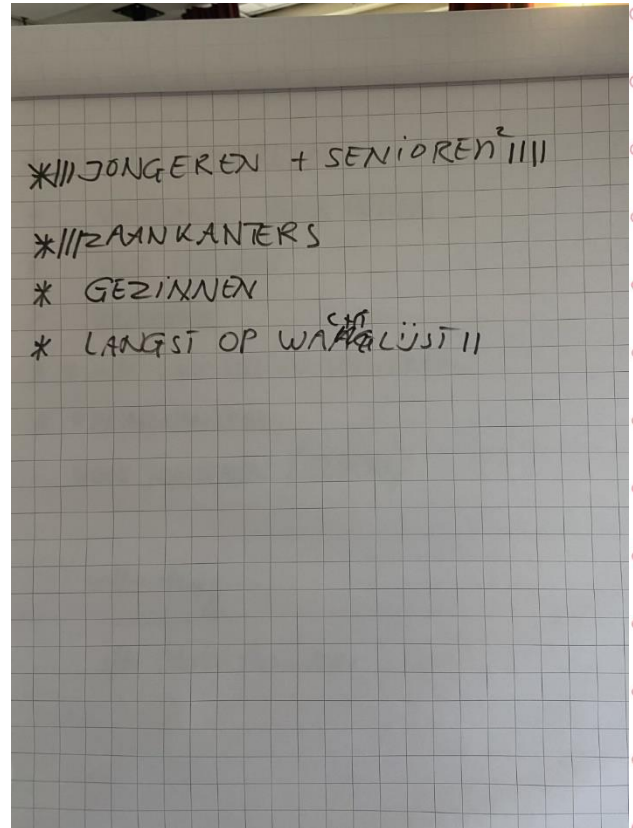 *||| JONGEREN + SENiOREN² ||||
*||| ZAANKANTERS
* GEZiNNEN
* LANGST OP WACHTLIJST ||